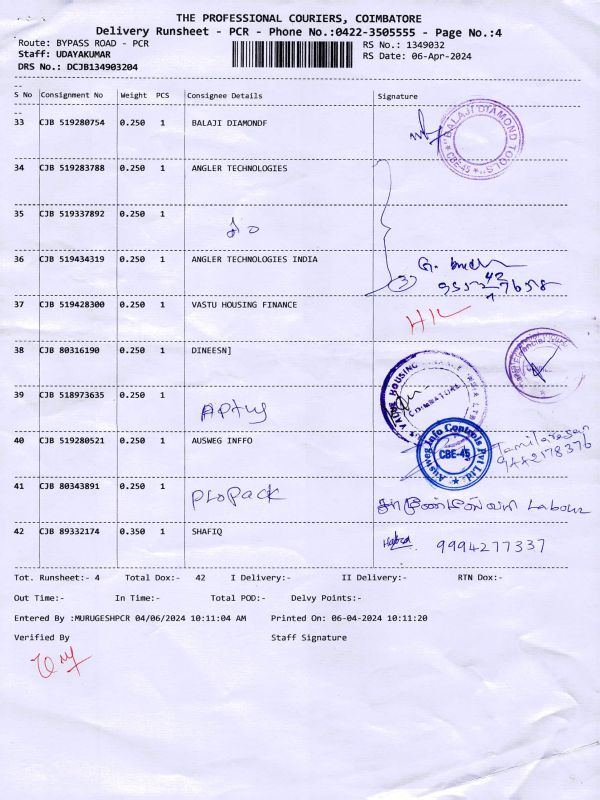 THE PROFESSIONAL COURIERS, COIMBATORE
Delivery Runsheet - PCR - Phone No.:0422-3505555 - Page No.:4
Route: BYPASS ROAD - PCR RS No.: 1349032
Staff: UDAYAKUMAR RS Date: 06-Apr-2024
DRS No.: DCJB134903204
S No Consignment No Weight PCS Consignee Details Signature
33 CJB 519280754 0.250 1 BALAJI DIAMONDF
BALAJI DIAMOND TOOLS
CBE-45
34 CJB 519283788 0.250 1 ANGLER TECHNOLOGIES
35 CJB 519337892 0.250 1
36 CJB 519434319 0.250 1 ANGLER TECHNOLOGIES INDIA
37 CJB 519428300 0.250 1 VASTU HOUSING FINANCE
38 CJB 80316190 0.250 1 DINEESN]
HOUSING FINANCE
COIMBATORE
39 CJB 518973635 0.250 1
40 CJB 519280521 0.250 1 AUSWEG INFFO
Ausweg Info Controls Pvt Ltd.
CBE-45
Tamilarasan
9442178376
41 CJB 80343891 0.250 1 Propack
Labour
42 CJB 89332174 0.350 1 SHAFIQ 9994277337
Tot. Runsheet:- 4 Total Dox:- 42 I Delivery:- II Delivery:- RTN Dox:-
Out Time:- In Time:- Total POD:- Delvy Points:-
Entered By :MURUGESHPCR 04/06/2024 10:11:04 AM Printed On: 06-04-2024 10:11:20
Verified By Staff Signature